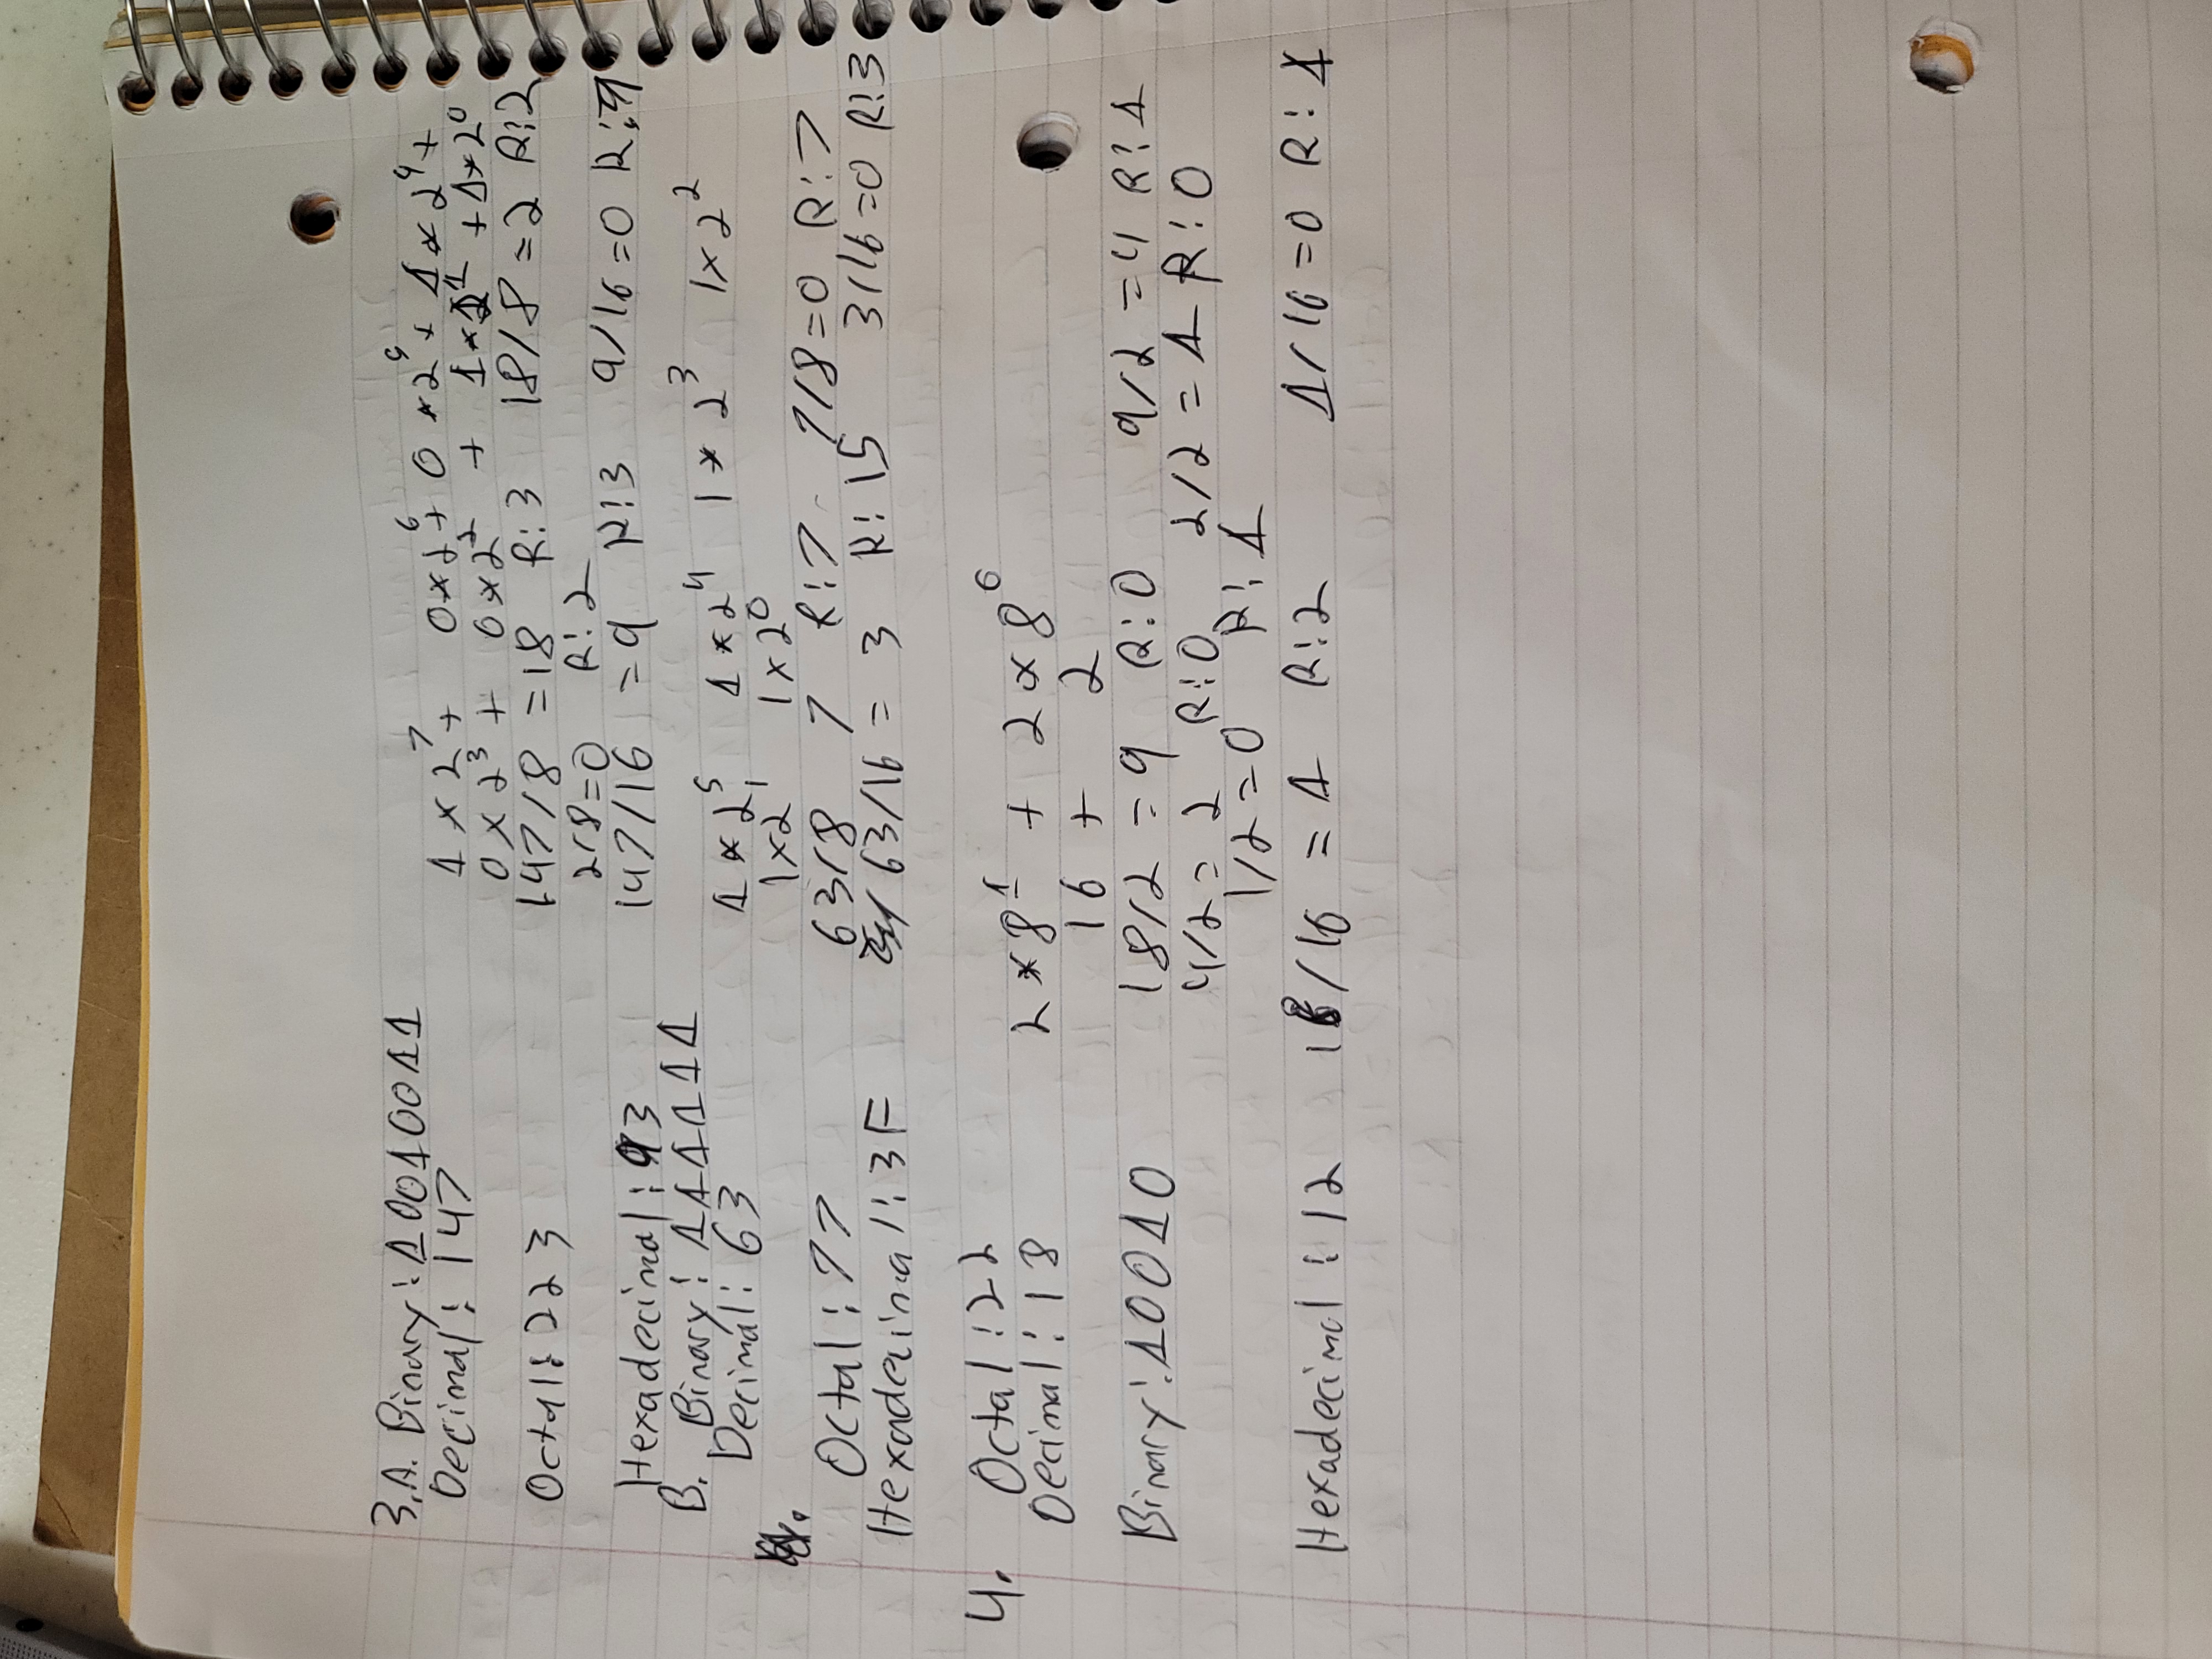 3.A. Binary: 10010011
Decimal: 147 1 × 2^7 + 0×2^6 + 0 *2^5 + 1 × 2^4 +
0 × 2^3 + 0×2^2 + 1*2^1 + 1*2^0
Octal: 223 147/8 =18 R:3 18/8 =2 R:2
2/8=0 R:2
Hexadecimal: 93 147/16 =9 R:3 9/16=0 R:9
B. Binary: 111111
Decimal: 63 1 * 2^5 1 * 2^4 1 * 2^3 1×2^2
1×2^1 1×2^0
Octal: 77 63/8 7 R:7 7/8=0 R:7
Hexadecimal: 3F 63/16 = 3 R: 15 3/16=0 R:3
4. Octal: 22
Decimal: 18 2 *8^1 + 2 × 8^0
16 + 2
Binary: 10010 18/2 =9 R:0 9/2 =4 R:1
4/2= 2 R:0 2/2 = 1 R:0
1/2=0 R: 1
Hexadecimal: 12 18/16 = 1 R:2 1/16=0 R: 1